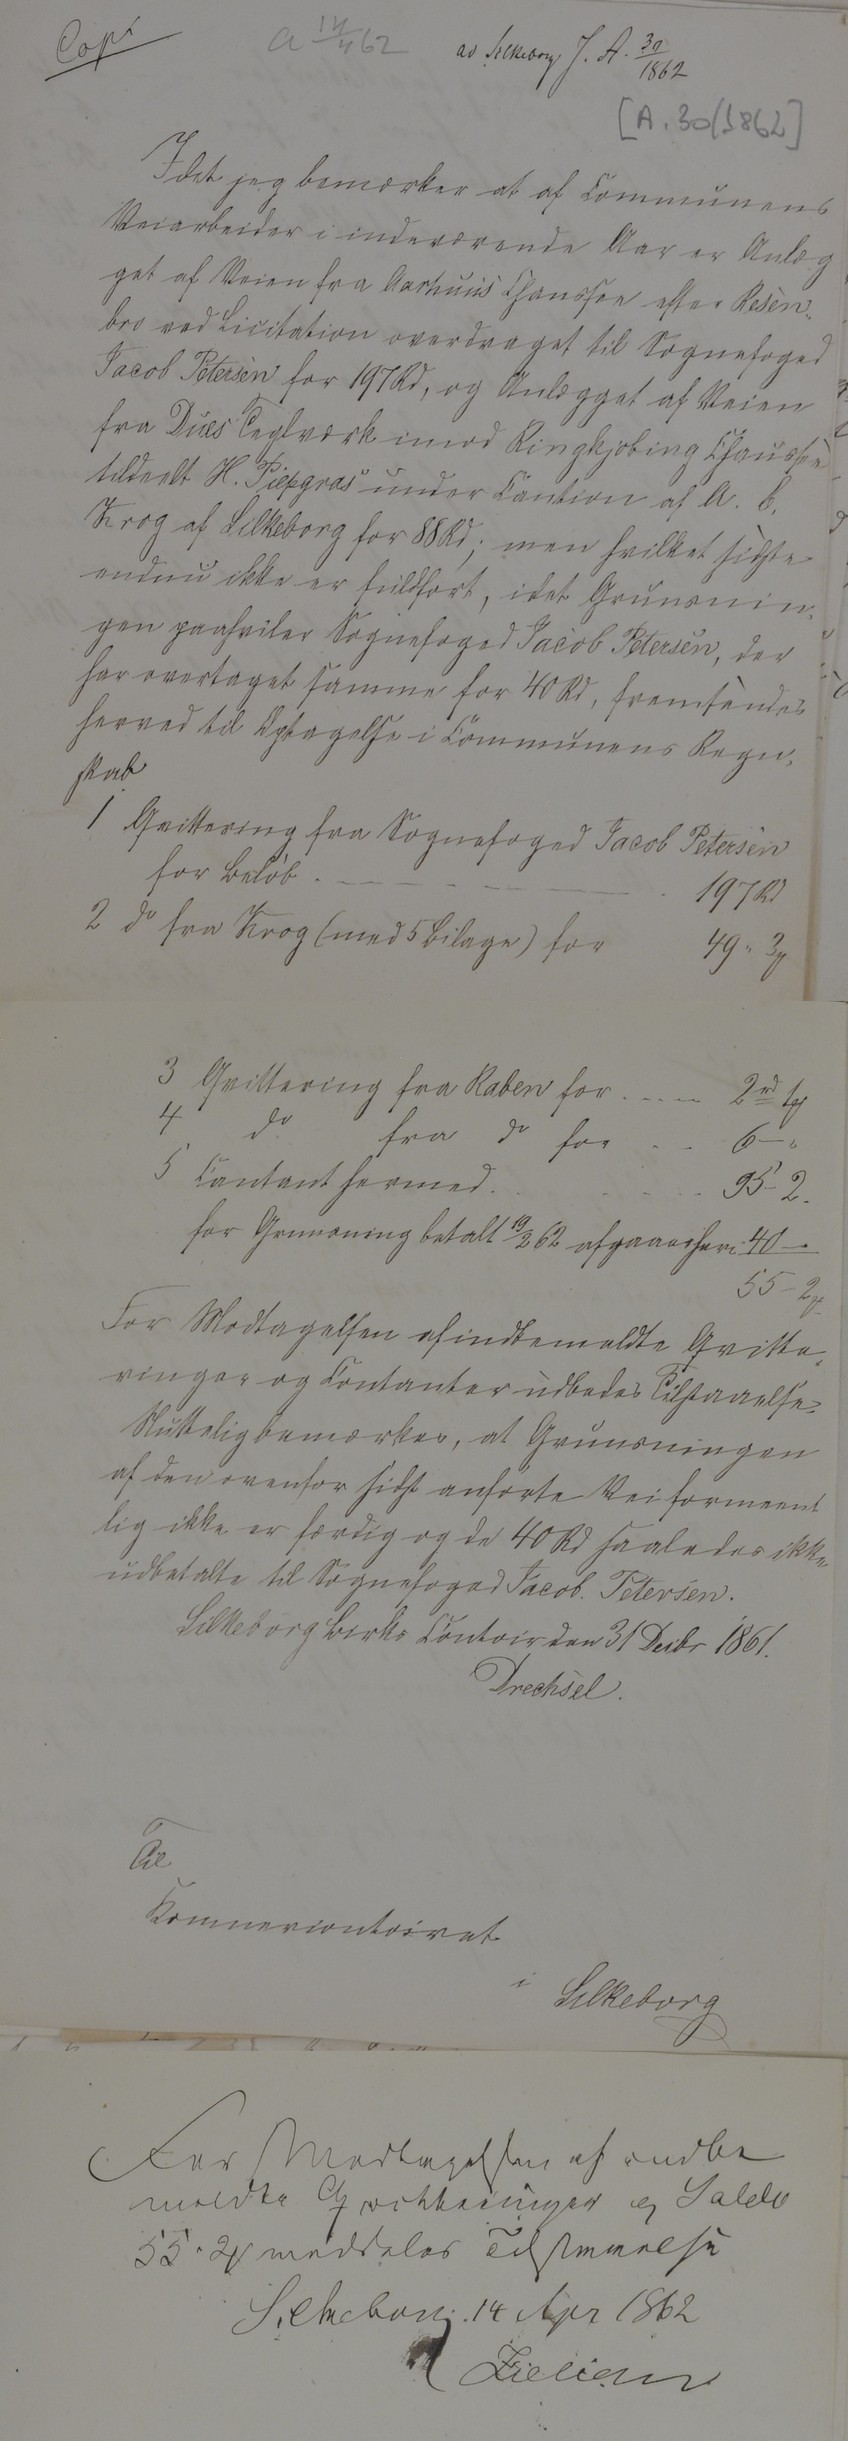 Copi
a 14/4 62
ad Silkeborg J. A. 30/1862
[A. 30/1862]
Idet jeg bemærker at af Communens
Veiarbeider i indeværende Aar er Anlæg
get af Veien fra Aarhuus Chaussee efter Resen-
bro ved Licitation overdraget til Sognefoged
Jacob Petersen for 197 Rd, og Anlægget af Veien
fra Dues Teglværk imod Ringkjøbing Chaussee
tildeelt H. Piepgras under Caution af A. C.
Krog af Silkeborg for 88 Rd; men hvilket sidste
endnu ikke er fuldført, idet Gruusnin-
gen paahviler Sognefoged Jacob Petersen, der
har overtaget samme for 40 Rd, fremsendes
herved til Optagelse i Communens Regn-
skab
1 Qvittering fra Sognefoged Jacob Petersen
for Beløb . 197 Rd
2 do fra Krog (med 5 Bilage) for 49 " 3
3 Qvittering fra Raben for .... 2 rd 1
4 do fra do for .. 6 - "
5 Contant hermed . . 95 - 2.
for Gruusning betalt 19/2 62 afgaaer heri 40 -
55 - 2
For Modtagelsen af indbemeldte Qvitte-
ringer og Contanter udbedes Tilstaaelse.
Slutteligbemærkes, at Gruusningen
af den ovenfor sidst anførte Vei formeent
lig ikke er færdig og de 40 Rd saaledes ikke
udbetalte til Sognefoged Jacob. Petersen.
Silkeborg Birks Contoir den 31 Decbr 1861.
Drechsel.
Til
Kæmnercontoiret
i Silkeborg
For Modtagelsen af indbe
meldte Qvitteringer og Saldo
55 " 2 meddeles Tilstaaelse
Silkeborg. 14 Apr 1862